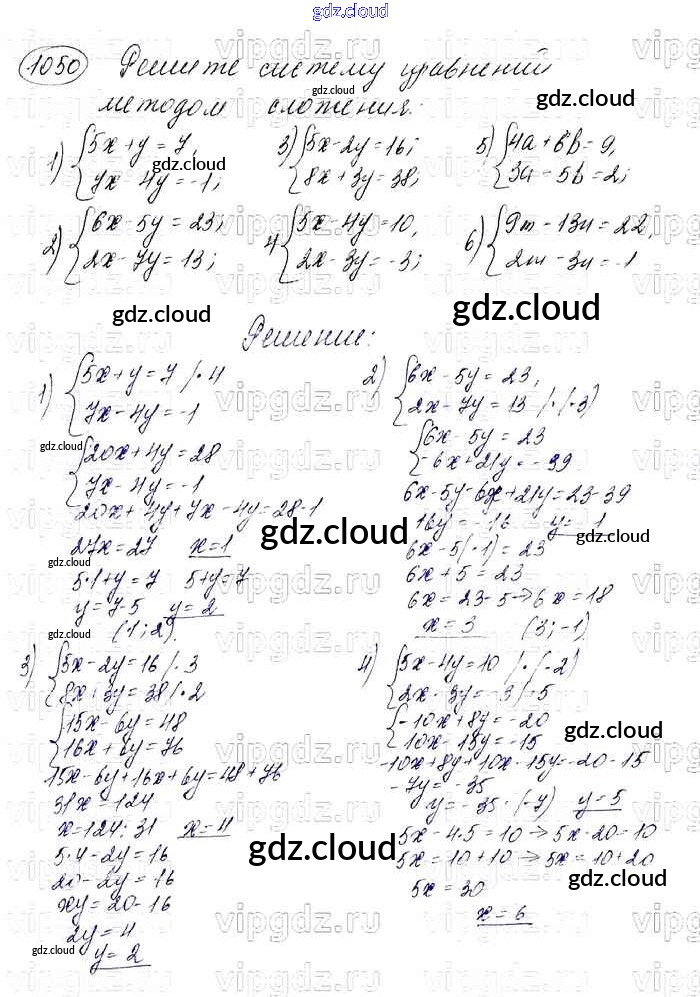 gdz.cloud
1050 Решите систему уравнений
методом сложения:
gdz.cloud
1) {5x+y=7, 3) {5x-2y=16; 5) {4a+6b=9,
gdz.cloud
{7x-4y=-1; {8x+3y=38; {3a-5b=2;
2) {6x-5y=23; 4 {5x-4y=10, 6) {9m-13n=22,
{2x-7y=13; {2x-3y=-3; {2m-3n=-1
gdz.cloud
gdz.cloud
Решение:
1) {5x+y=7 /·4
{7x-4y=-1
gdz.cloud
{20x+4y=28
{7x-4y=-1
20x+4y+7x-4y=28-1
27x=27 x=1
5·1+y=7 5+y=7
y=7-5 y=2
(1;2)
gdz.cloud
2) {6x-5y=23,
{2x-7y=13 /·(-3)
{6x-5y=23
{-6x+21y=-39
6x-5y-6x+21y=23-39
16y=-16 y=-1
gdz.cloud
6x-5(-1)=23
6x+5=23
6x=23-5→6x=18
x=3 (3;-1)
3) {5x-2y=16 /·3
{8x+3y=38 /·2
{15x-6y=48
{16x+6y=76
15x-6y+16x+6y=48+76
31x=124
x=124:31 x=4
gdz.cloud
5·4-2y=16
20-2y=16
xy=20-16
2y=4
y=2
gdz.cloud
4) {5x-4y=10 /·(-2)
{2x-3y=-3 /·5
{-10x+8y=-20
gdz.cloud
{10x-15y=-15
-10x+8y+10x-15y=-20-15
-7y=-35
y=-35·(-7) y=5
5x-4·5=10→5x-20=10
5x=10+10→5x=10+20
gdz.cloud
5x=30
x=6